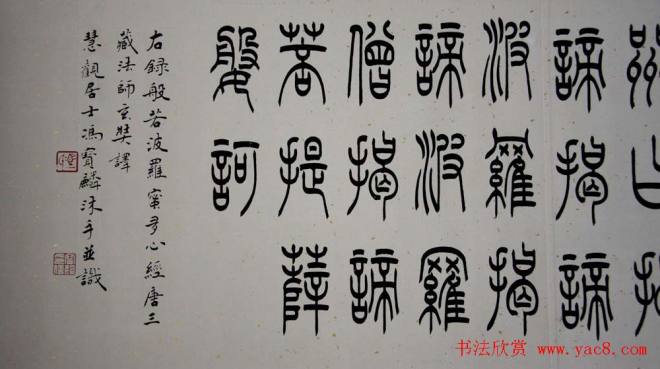 諦揭諦
波羅揭
諦波羅
僧揭諦
菩提薛
媻訶
右錄般若波羅蜜多心經唐三
藏法師玄奘譯
慧觀居士馮寶麟沐手並識
书法欣赏 www.yac8.com